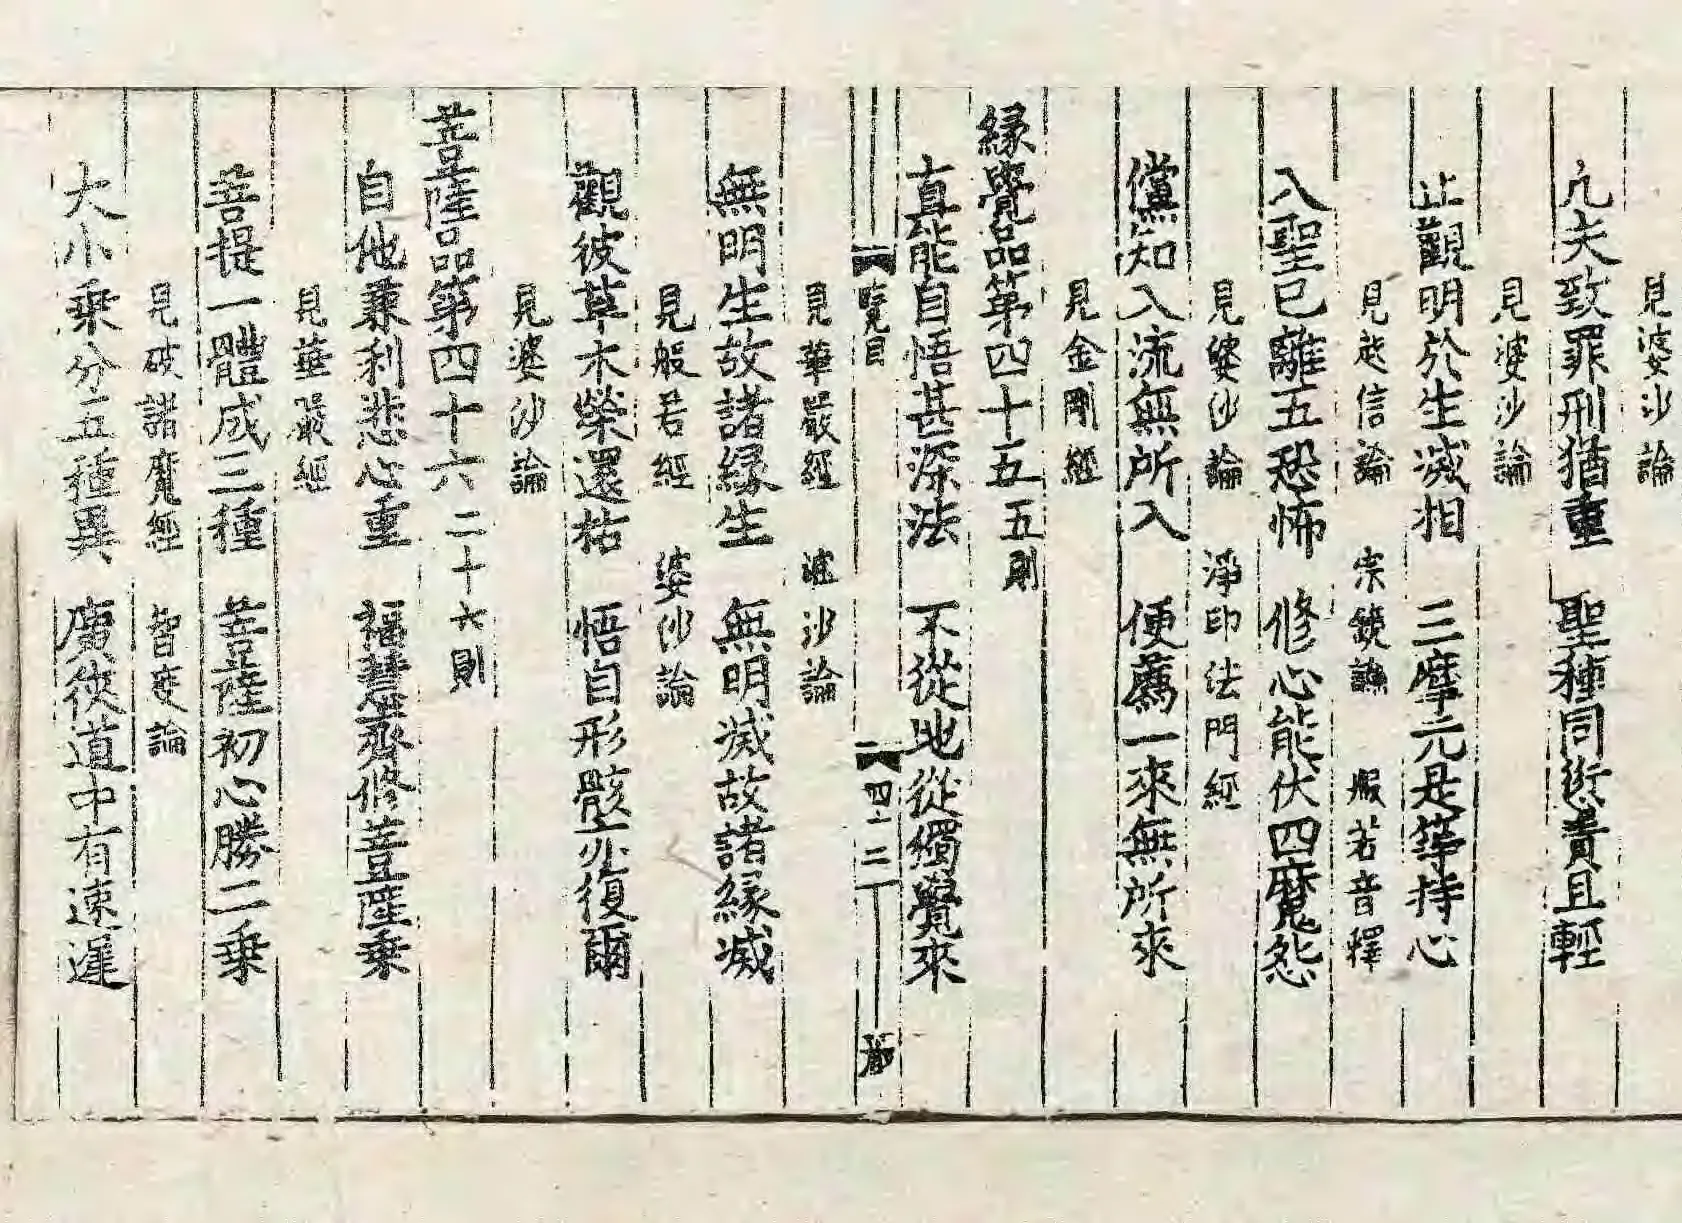 見婆沙論
凢夫致罪刑猶重　聖種同愆責且輕
見婆沙論
止觀明於生滅相　三摩元是等持心
見起信論　宗鏡錄　般若音釋
入聖已離五恐怖　修心能伏四魔怨
見婆沙論　淨印法門經
儻知入流無所入　便薦一來無所來
見金剛經
緣覺品第四十五　五則
真能自悟甚深法　不從他從獨覺來
覽目　四十二
見華嚴經　婆沙論
無明生故諸緣生　無明滅故諸緣滅
見般若經　婆沙論
觀彼草木榮還枯　悟自形骸亦復爾
見婆沙論
菩薩品第四十六　二十六則
自他兼利悲心重　福慧齊修菩薩乗
見華嚴經
菩提一體成三種　菩薩初心勝二乗
見破諸魔經　智度論
大小乗分五種異　廣狹道中有速遲